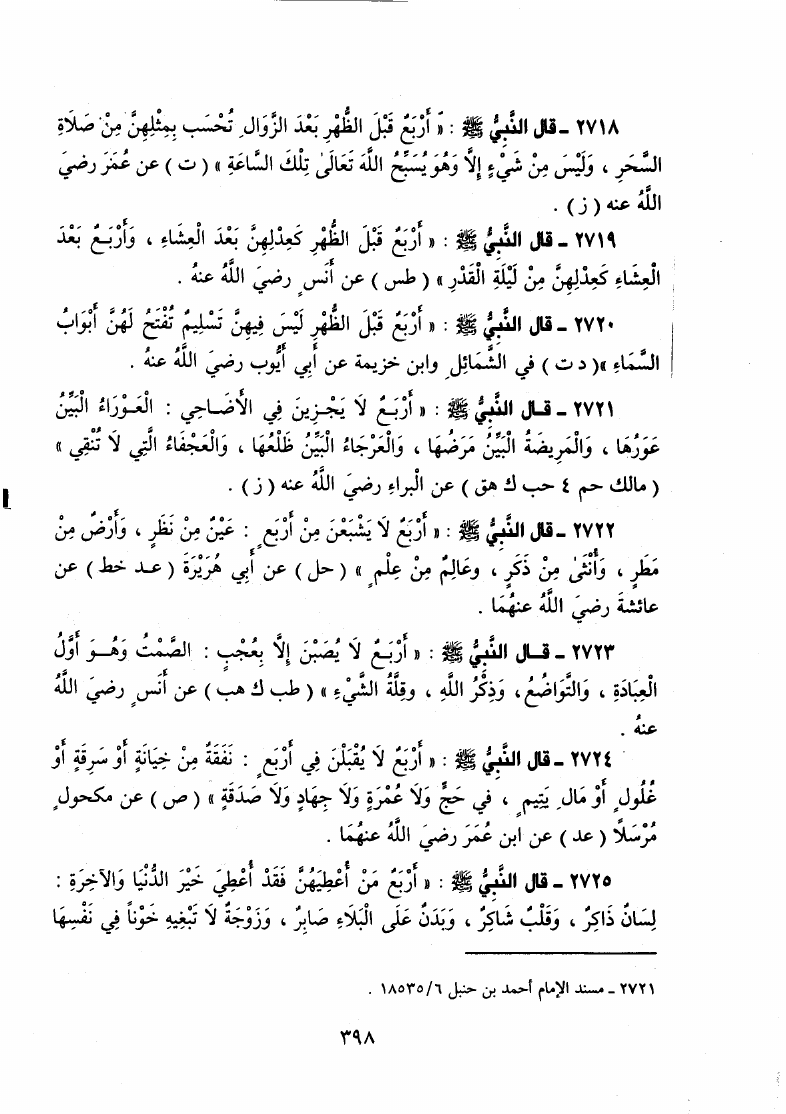 ٢٧١٨ - قال النَّبيُّ ﷺ : « أَرْبَعٌ قَبْلَ الظُّهْرِ بَعْدَ الزَّوَالِ تُحْسَب بِمِثْلِهِنَّ مِنْ صَلَاةِ
السَّحَرِ ، وَلَيْسَ مِنْ شَيْءٍ إِلَّا وَهُوَ يُسَبِّحُ اللَّهَ تَعَالَىٰ تِلْكَ السَّاعَةِ » ( ت ) عن عُمَرَ رضيَ
اللَّهُ عنه ( ز ) .
٢٧١٩ - قال النَّبيُّ ﷺ : « أَرْبَعٌ قَبْلَ الظُّهْرِ كَعِدْلِهِنَّ بَعْدَ الْعِشَاءِ ، وَأَرْبَعٌ بَعْدَ
الْعِشَاءِ كَعِدْلِهِنَّ مِنْ لَيْلَةِ الْقَدْرِ » ( طس ) عن أَنَسٍ رضيَ اللَّهُ عنهُ .
٢٧٢٠ - قال النَّبيُّ ﷺ : « أَرْبَعٌ قَبْلَ الظُّهْرِ لَيْسَ فِيهِنَّ تَسْلِيمٌ تُفْتَحُ لَهُنَّ أَبْوَابُ
السَّمَاءِ »( د ت ) في الشَّمَائِلِ وابن خزيمة عن أَبي أَيُّوب رضيَ اللَّهُ عنهُ .
٢٧٢١ - قال النَّبيُّ ﷺ : « أَرْبَعٌ لَا يَجْزِينَ فِي الْأَضَاحِي : الْعَوْرَاءُ الْبَيِّنُ
عَوَرُهَا ، وَالْمَرِيضَةُ الْبَيِّنُ مَرَضُهَا ، وَالْعَرْجَاءُ الْبَيِّنُ ظَلْعُهَا ، وَالْعَجْفَاءُ الَّتِي لَا تُنْقِي »
( مالك حم ٤ حب ك هق ) عن الْبراءِ رضيَ اللَّهُ عنه ( ز ) .
٢٧٢٢ - قال النَّبيُّ ﷺ : « أَرْبَعٌ لَا يَشْبَعْنَ مِنْ أَرْبَعٍ : عَيْنٌ مِنْ نَظَرٍ ، وَأَرْضٌ مِنْ
مَطَرٍ ، وَأُنْثَىٰ مِنْ ذَكَرٍ ، وَعَالِمٌ مِنْ عِلْمٍ » ( حل ) عن أَبي هُرَيْرَةَ ( عد خط ) عن
عائشةَ رضيَ اللَّهُ عنهُمَا .
٢٧٢٣ - قال النَّبيُّ ﷺ : « أَرْبَعٌ لَا يُصَبْنَ إِلَّا بِعُجْبٍ : الصَّمْتُ وَهُوَ أَوَّلُ
الْعِبَادَةِ ، وَالتَّوَاضُعُ ، وَذِكْرُ اللَّهِ ، وَقِلَّةُ الشَّيْءِ » ( طب ك هب ) عن أَنَسٍ رضيَ اللَّهُ
عنهُ .
٢٧٢٤ - قال النَّبيُّ ﷺ : « أَرْبَعٌ لَا يُقْبَلْنَ فِي أَرْبَعٍ : نَفَقَةٌ مِنْ خِيَانَةٍ أَوْ سَرِقَةٍ أَوْ
غُلُولٍ أَوْ مَالِ يَتِيمٍ ، في حَجٍّ وَلَا عُمْرَةٍ وَلَا جِهَادٍ وَلَا صَدَقَةٍ » ( ص ) عن مكحولٍ
مُرْسَلًا ( عد ) عن ابن عُمَرَ رضيَ اللَّهُ عنهُمَا .
٢٧٢٥ - قال النَّبيُّ ﷺ : « أَرْبَعٌ مَنْ أُعْطِيَهُنَّ فَقَدْ أُعْطِيَ خَيْرَ الدُّنْيَا وَالآخِرَةِ :
لِسَانٌ ذَاكِرٌ ، وَقَلْبٌ شَاكِرٌ ، وَبَدَنٌ عَلَى الْبَلَاءِ صَابِرٌ ، وَزَوْجَةٌ لَا تَبْغِيهِ خَوْناً فِي نَفْسِهَا
٢٧٢١ - مسند الإمام أحمد بن حنبل ١٨٥٣٥/٦ .
٣٩٨